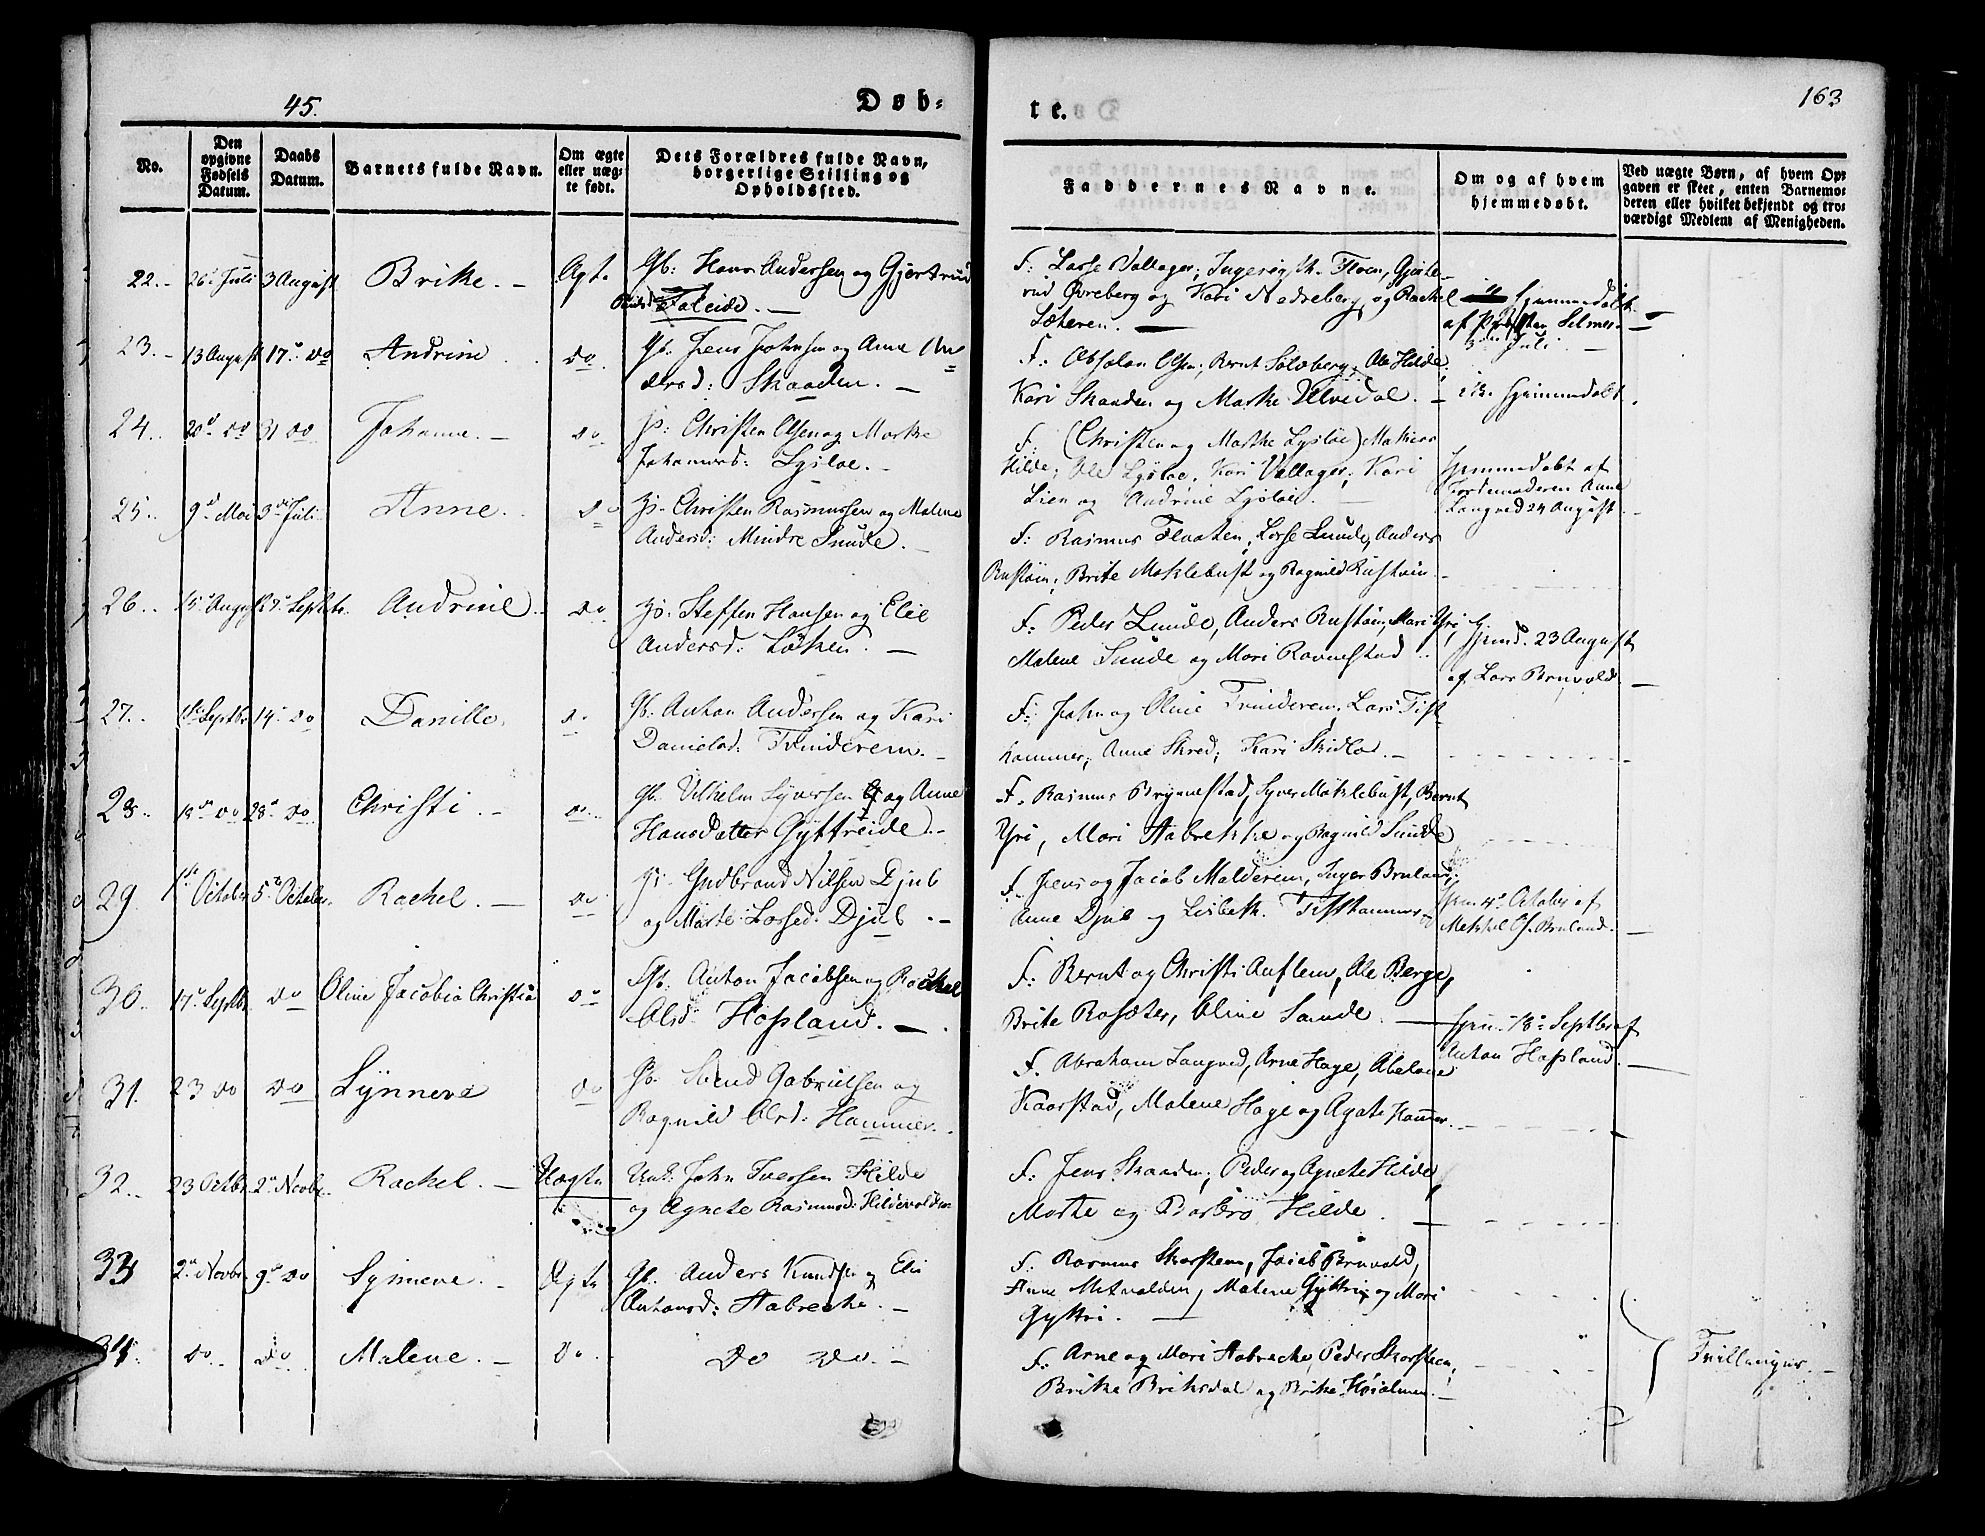 45.
Døb-
te.
163
No.
Den opgivne Fødsels Datum.
Daabs Datum.
Barnets fulde Navn.
Om ægte eller uægte født.
Dets Forældres fulde Navn, borgerlige Stilling og Opholdssted.
Faddernes Navne.
Om og af hvem hjemmedøbt.
Ved uægte Børn, af hvem Opgaven er skeet, enten Barnemoderen eller hvilket bekjendt og troværdigt Medlem af Menigheden.
22. 26 Juli 3 August Brithe. Ægte Gb: Hans Andersen og Gjertrud
Faleide.
F: Lasse Vallager; Ingerigth. Floen, Gjerte-
rud Øvreberg og Kari Nedreberg og Rachel
Sæteren.
Hjemmedøbt
23. 13 August 17 do Andrine do Gb. Jens Johnsen og Anne An=
dersd: Skaaden.
F: Absalon Olsen; Bernt Solvberg; Ole Hilde
Kari Skaaden og Marthe Ulvedal.
ik. Hjemmedøbt.
24. 20 do 31 do Johanne. do Js: Christen Olsen og Marthe
Johannesd: Lysløe.
F: (Christen og Marthe Lysløe) Mathias
Hilde; Ole Lysløe, Kari Vallager; Kari
Lien og Andrine Lysløe.
Hjemmedøbt af
Jordemoderen Anne
Langved 24 August
25. 9 Mai 3 Juli Anne. do Js. Christen Rasmussen og Malene
Andersd: Mindre Sunde.
F: Rasmus Flaaten, Lasse Sunde, Anders
Rustøen; Brite Maklebust og Ragnild Rustøen
26. 15 August Septbr. Andrine do Jo: Steffen Hansen og Elie
Andersd: Løken.
F: Peder Sunde, Anders Rustøen, Mari Yri,
Malene Sunde og Mari Ravnestad
Hjemd. 23 August
af Lars Bruvold.
27. Septbr 14 do Danille. do Gb. Anton Andersen og Kari
Danielsd: Tvinderem.
F: John og Oline Tvinderem; Lars Tist-
hammer; Anne Skred; Kari Skidlo.
28. 18 do 28 do Christi. do Gb. Vilhelm Syversen og Anne
Hansdatter Gyttreide.
F. Rasmus Brynestad, Syver Maklebust, Bernt
Yri, Mari Aabrekke og Ragnild Sunde
29 1ste October 5 October. Rachel. do Gudbrand Nilsen Djub
og Marte Lassed: Djub.
F. Jens og Jacob Malderem, Inger Bruland;
Anne Djub og Lisbeth Tisthammer
Hjem. 4 October af
Bruland.
30. 17 Septbr do Oline Jacobia Christia do Gb. Anton Jacobsen og Rachel
Olsd: Hopland.
F: Bernt og Christi Auflem, Ole Berge,
Brite Rosæter, Oline Sande.
Hjem. 18 Septbr af
Anton Hopland.
31. 23 do do Synneve do Gb. Svend Gabrielsen og
Ragnild Olsd: Hammer.
F. Abraham Langved, Arne Hage, Abelone
Kaarstad, Malene Hage og Agate Hammer.
32. 23 Octbr. 2 Novbr. Rachel. Uægte Unk. John Iversen Hilde
og Agnete Rasmusd: Hildevolden
F: Jens Skaaden; Peder og Agnete Hilde,
Marte og Barbro Hilde.
33 2 Novbr. 9 do Synneve. Ægte Gb. Anders Knudsen og Elie
Antonsd: Aabrekke.
F: Rasmus Skorsteen, Jacob Bruvold,
Anne Melvolden, Malene Gyttri og Mari
Gyttri.
34. do do Malene. do do do.
F: Arne og Mari Aabrecke, Peder Skorsteen,
Brithe Briksdal og Brithe Høialmen.
Tvillinger.